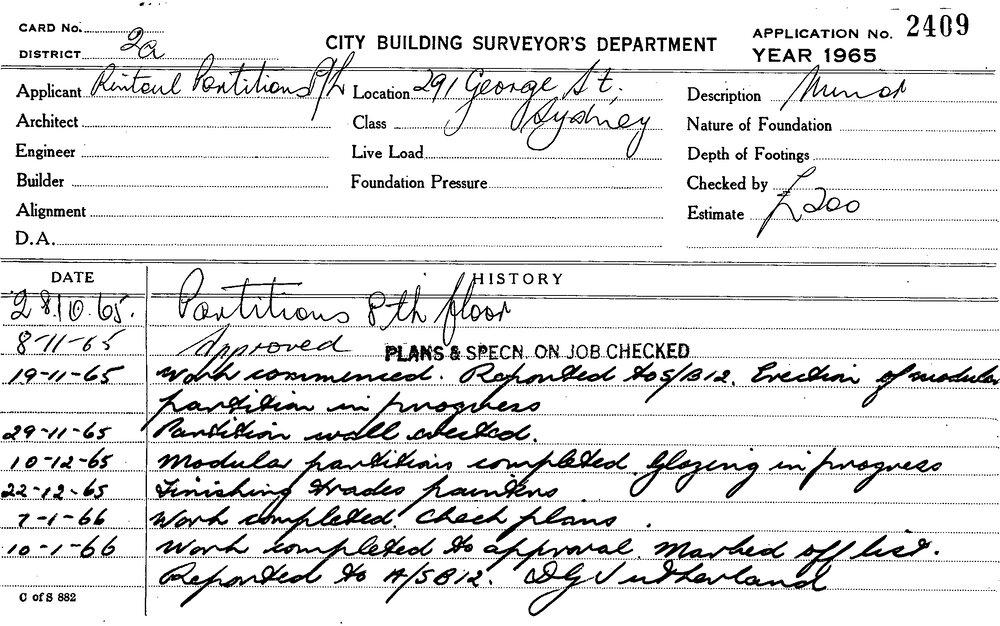 CARD No.
DISTRICT 2a
CITY BUILDING SURVEYOR'S DEPARTMENT
APPLICATION No. 2409
YEAR 1965
Applicant Rintoul Partitions P/L
Location 291 George St,
Sydney
Description Minor
Architect
Class
Nature of Foundation
Engineer
Live Load
Depth of Footings
Builder
Foundation Pressure
Checked by
Alignment
Estimate £200
D.A.
DATE HISTORY
28.10.65. Partitions 8th floor
8-11-65 Approved PLANS & SPECN. ON JOB CHECKED
19-11-65 Work commenced. Reported to S/B12. Erection of modular
partition in progress
29-11-65 Partition wall erected.
10-12-65 Modular partitions completed. Glazing in progress
22-12-65 Finishing trades painters.
7-1-66 Work completed. Check plans.
10-1-66 Work completed to approval. Marked off list.
Reported to A/SB12. DG Sutherland
C of S 882